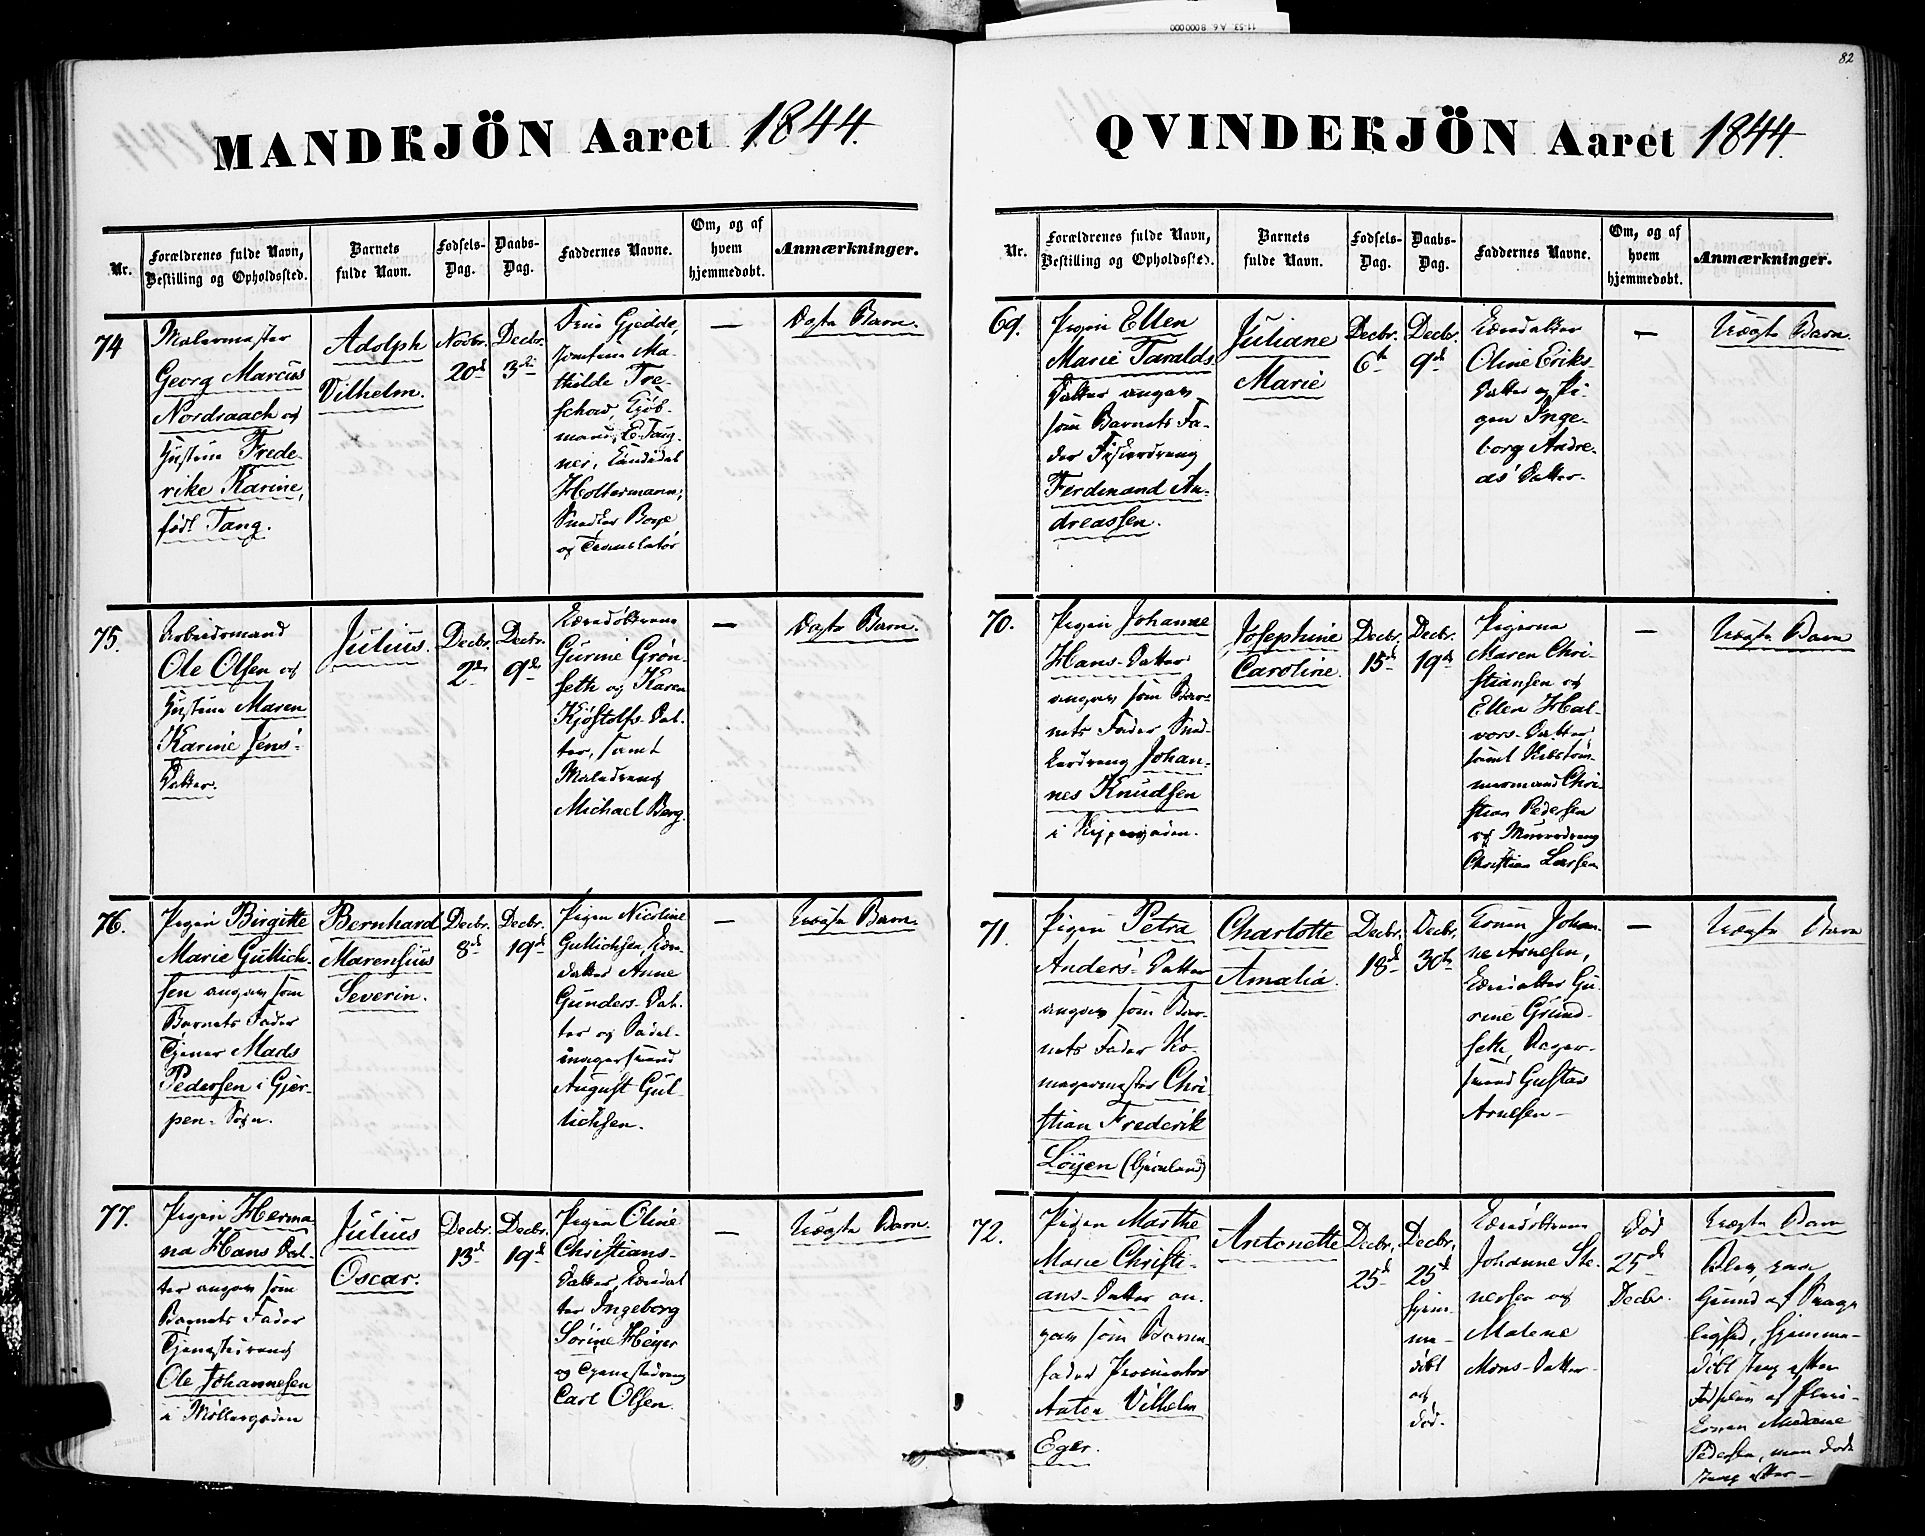 11-53. A 6. 8000000
82
MANDKJÖN Aaret 1844.
Nr.
Forældrenes fulde Navn,
Bestilling og Opholdssted.
Barnets
fulde Navn.
Fødsels-
Dag.
Daabs-
Dag.
Faddernes Navne.
Om, og af
hvem
hjemmedøbt.
Anmærkninger.
74
Malermester
Georg Marcus
Nordraach og
Hustru Frede-
rike Karine,
født Tang.
Adolph
Vilhelm.
Novbr.
20d
Decbr.
3die
Gjedde,
Jomfru Ma-
thilde Tre-
schow, Kjøb-
mand, E Tang-
Candidat
Holtermann,
Snedker
og
—
Ægte Barn.
75.
Arbeidsmand
Ole Olsen og
Hustru Maren
Karine Jens'-
Datter.
Julius.
Decbr.
2d
Decbr.
9d
Gurine Grøn-
seth og Karen
Kjøstolfs-Dat-
ter, samt
Michael Berg.
—
Ægte Barn.
76.
Pigen Birgitte
Marie Gullich-
sen angav som
Barnets Fader
Tjener Mads
Pedersen i Gjer-
pen-Sogn.
Bernhard
Marensius
Severin.
Decbr.
8d
Decbr.
19d
Pigen Nicoline
Gullichsen, Eene-
datter Anne
Gunders-Dat-
ter og Sadel-
magersvend
August Gul-
lichsen.
—
Uægte Barn.
77.
Pigen Herma-
na Hans Dat-
ter angav som
Barnets Fader
Tjenestedreng
Ole Johannesen
i Møllergaden
Julius
Oscar.
Decbr.
13d
Decbr.
19d
Pigen Oline
Christians-
Datter,
ter Ingeborg
Sørine Heyer
og Tjenestedreng
Carl Olsen.
—
Uægte Barn.
QVINDEKJÖN Aaret 1844.
Nr.
Forældrenes fulde Navn,
Bestilling og Opholdssted.
Barnets
fulde Navn.
Fødsels-
Dag.
Daabs-
Dag.
Faddernes Navne.
Om, og af
hvem
hjemmedøbt.
Anmærkninger.
69.
Pigen Ellen
Marie Taralds
Datter angav
som Barnets Fa-
der Fiskerdreng
Ferdinand An-
dreassen.
Juliane
Marie
Decbr.
6t
Decbr.
9d
Oline Eriks-
Datter og Pi-
gen Inge-
borg Andre-
as' Datter.
—
Uægte Barn.
70.
Pigen Johanne
Hans-Datter
angav som Bar-
nets Fader Sned-
kerdreng Johan-
nes Knudsen
i
Josephine
Caroline.
Decbr.
15d
Decbr.
19d
Pigerne
Maren Chri-
stiansen og
Ellen Hal-
vors-Datter
samt
Chri-
stian Pedersen
og Murerdreng
Christian Larsen
—
Uægte Barn
71.
Pigen Petra
Anders'-Datter
angav som Bar-
nets Fader Ko-
magermester Chri-
stian Frederik
Löyen (Grönland)
Charlotte
Amalia.
Decbr.
18d
Decbr.
30t
Konen Johan-
ne Arnesen,
Gu-
rine Grund-
seth, Bager-
svend Gustav
Arnesen-
—
Uægte Barn
72.
Pigen Marthe
Marie Christi-
ans-Datter an-
gav som Barne-
fader Procurator
Anton Vilhelm
Eger.
Antonette
Decbr.
25d
Decbr.
25d
hjem-
me-
døbt
og
död.
Johanne Ste-
nersen og
Malene
Mons-Datter-
Död
25de
Decbr.
Uægte Barn
Blev, paa
Grund af Svage-
lighed, hjemme-
døbt strax efter
Fødselen af
Madame
Pedersen, men døde
strax efter-